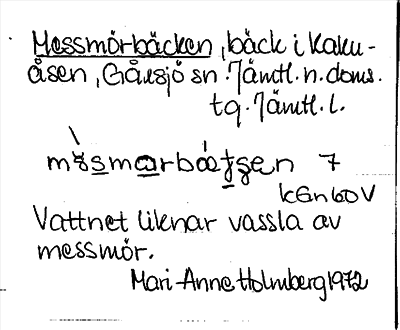 Messmörbäcken, bäck i Kaku-
åsen, Gåxsjö sn. Jämtl. n. doms.
tg. Jämtl. l.
7
Vattnet liknar vassla av
messmör.
Mari-Anne Holmberg 1972